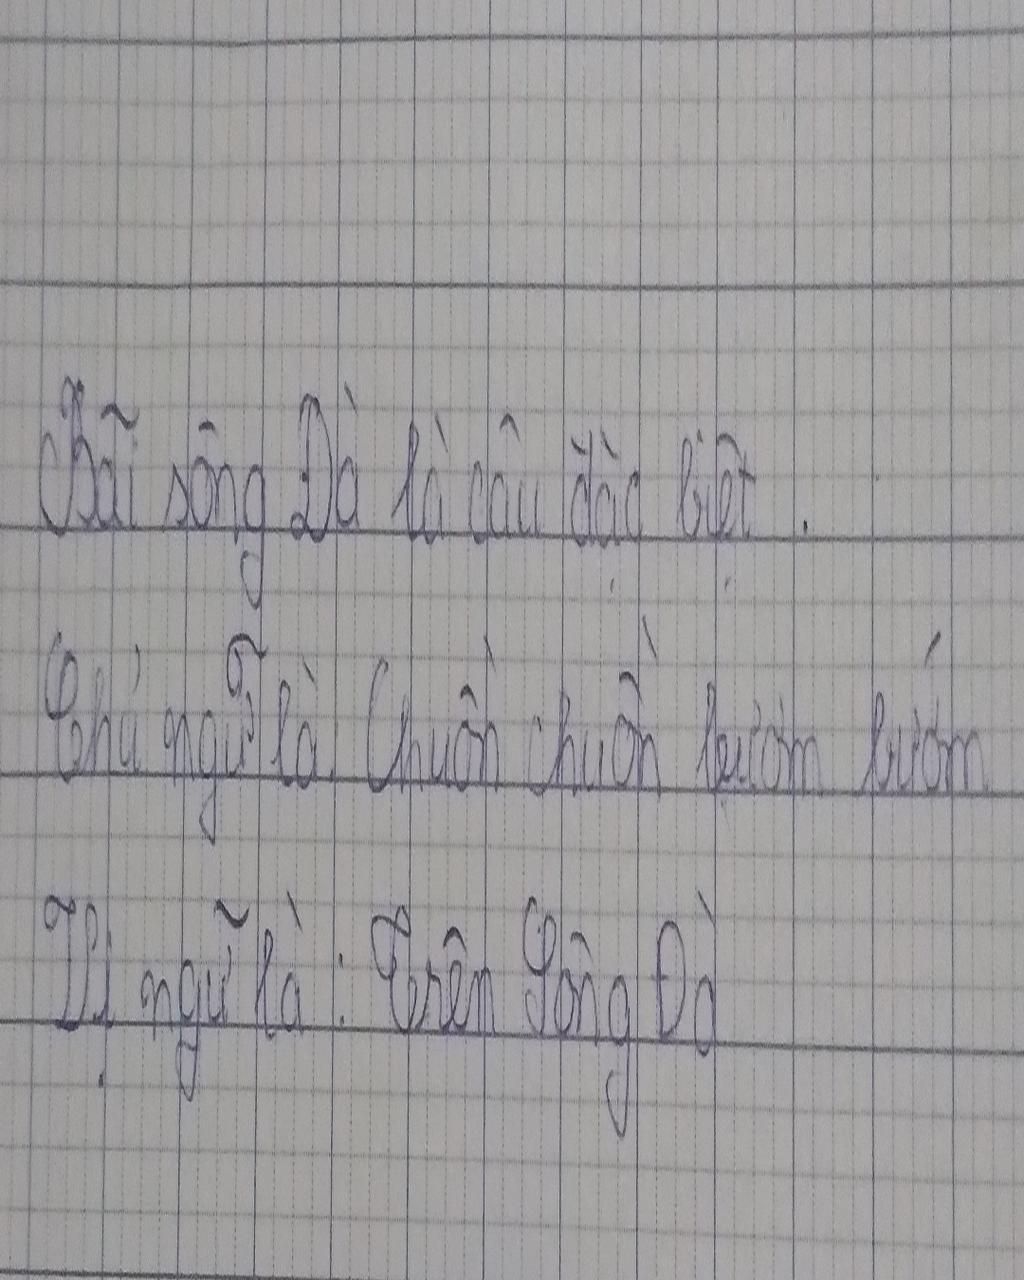 Bãi sông Đà là câu đặc biệt.
Chủ ngữ là. Chuồn chuồn bươm bướm
Vị ngữ là: Trên Sông Đà